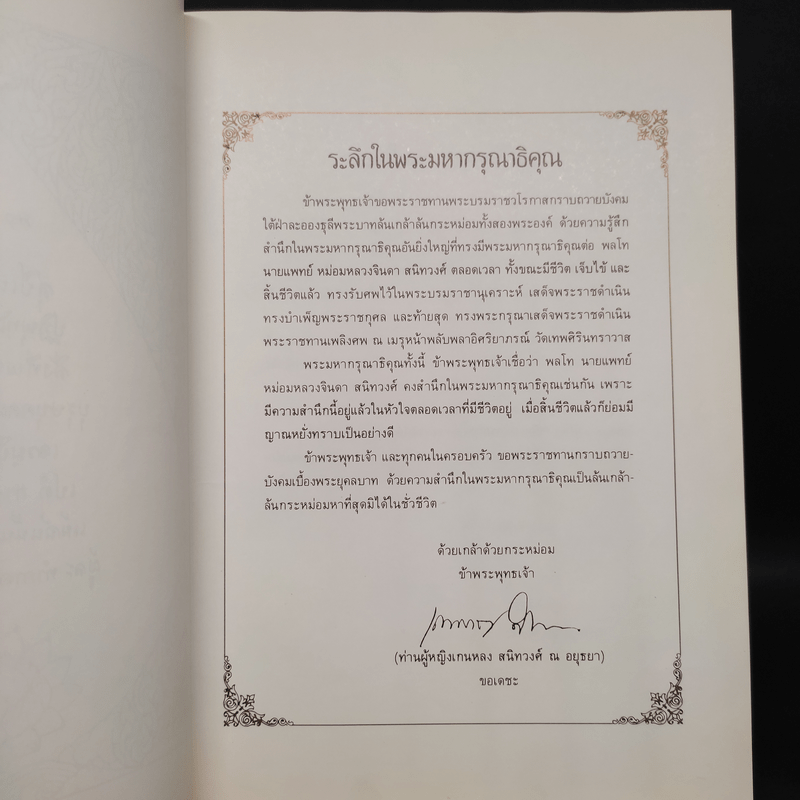 ระลึกในพระมหากรุณาธิคุณ
ข้าพระพุทธเจ้าขอพระราชทานพระบรมราชวโรกาสกราบถวายบังคม
ใต้ฝ่าละอองธุลีพระบาทล้นเกล้าล้นกระหม่อมทั้งสองพระองค์ ด้วยความรู้สึก
สำนึกในพระมหากรุณาธิคุณอันยิ่งใหญ่ที่ทรงมีพระมหากรุณาธิคุณต่อ พลโท
นายแพทย์ หม่อมหลวงจินดา สนิทวงศ์ ตลอดเวลา ทั้งขณะมีชีวิต เจ็บไข้ และ
สิ้นชีวิตแล้ว ทรงรับศพไว้ในพระบรมราชานุเคราะห์ เสด็จพระราชดำเนิน
ทรงบำเพ็ญพระราชกุศล และท้ายสุด ทรงพระกรุณาเสด็จพระราชดำเนิน
พระราชทานเพลิงศพ ณ เมรุหน้าพลับพลาอิศริยาภรณ์ วัดเทพศิรินทราวาส
พระมหากรุณาธิคุณทั้งนี้ ข้าพระพุทธเจ้าเชื่อว่า พลโท นายแพทย์
หม่อมหลวงจินดา สนิทวงศ์ คงสำนึกในพระมหากรุณาธิคุณเช่นกัน เพราะ
มีความสำนึกนี้อยู่แล้วในหัวใจตลอดเวลาที่มีชีวิตอยู่ เมื่อสิ้นชีวิตแล้วก็ย่อมมี
ญาณหยั่งทราบเป็นอย่างดี
ข้าพระพุทธเจ้า และทุกคนในครอบครัว ขอพระราชทานกราบถวาย-
บังคมเบื้องพระยุคลบาท ด้วยความสำนึกในพระมหากรุณาธิคุณเป็นล้นเกล้า-
ล้นกระหม่อมหาที่สุดมิได้ในชั่วชีวิต
ด้วยเกล้าด้วยกระหม่อม
ข้าพระพุทธเจ้า
(ท่านผู้หญิงเกนหลง สนิทวงศ์ ณ อยุธยา)
ขอเดชะ